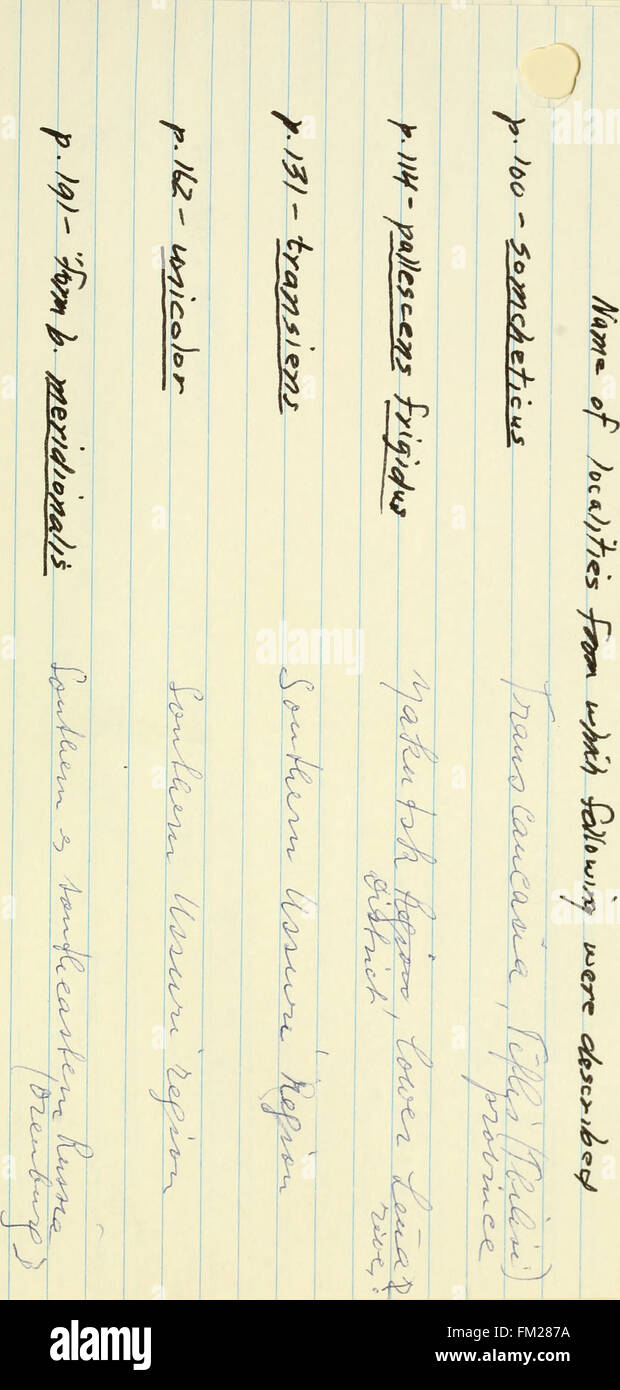 Name of localities from which following were described
p. 100 - somcheticus Transcaucasia, Tiflis (Tbilisi) province
p. 114 - pallescens frigidus Yakutsk Region, District Lower Lena River
p. 131 - transiens Southern Ussuri Region
p. 162 - unicolor Southern Ussuri region
p. 191 - "form b. meridionalis Southern & southeastern Russia (Orenburg)
alamy
alamy
Image ID: FM287A
www.alamy.com